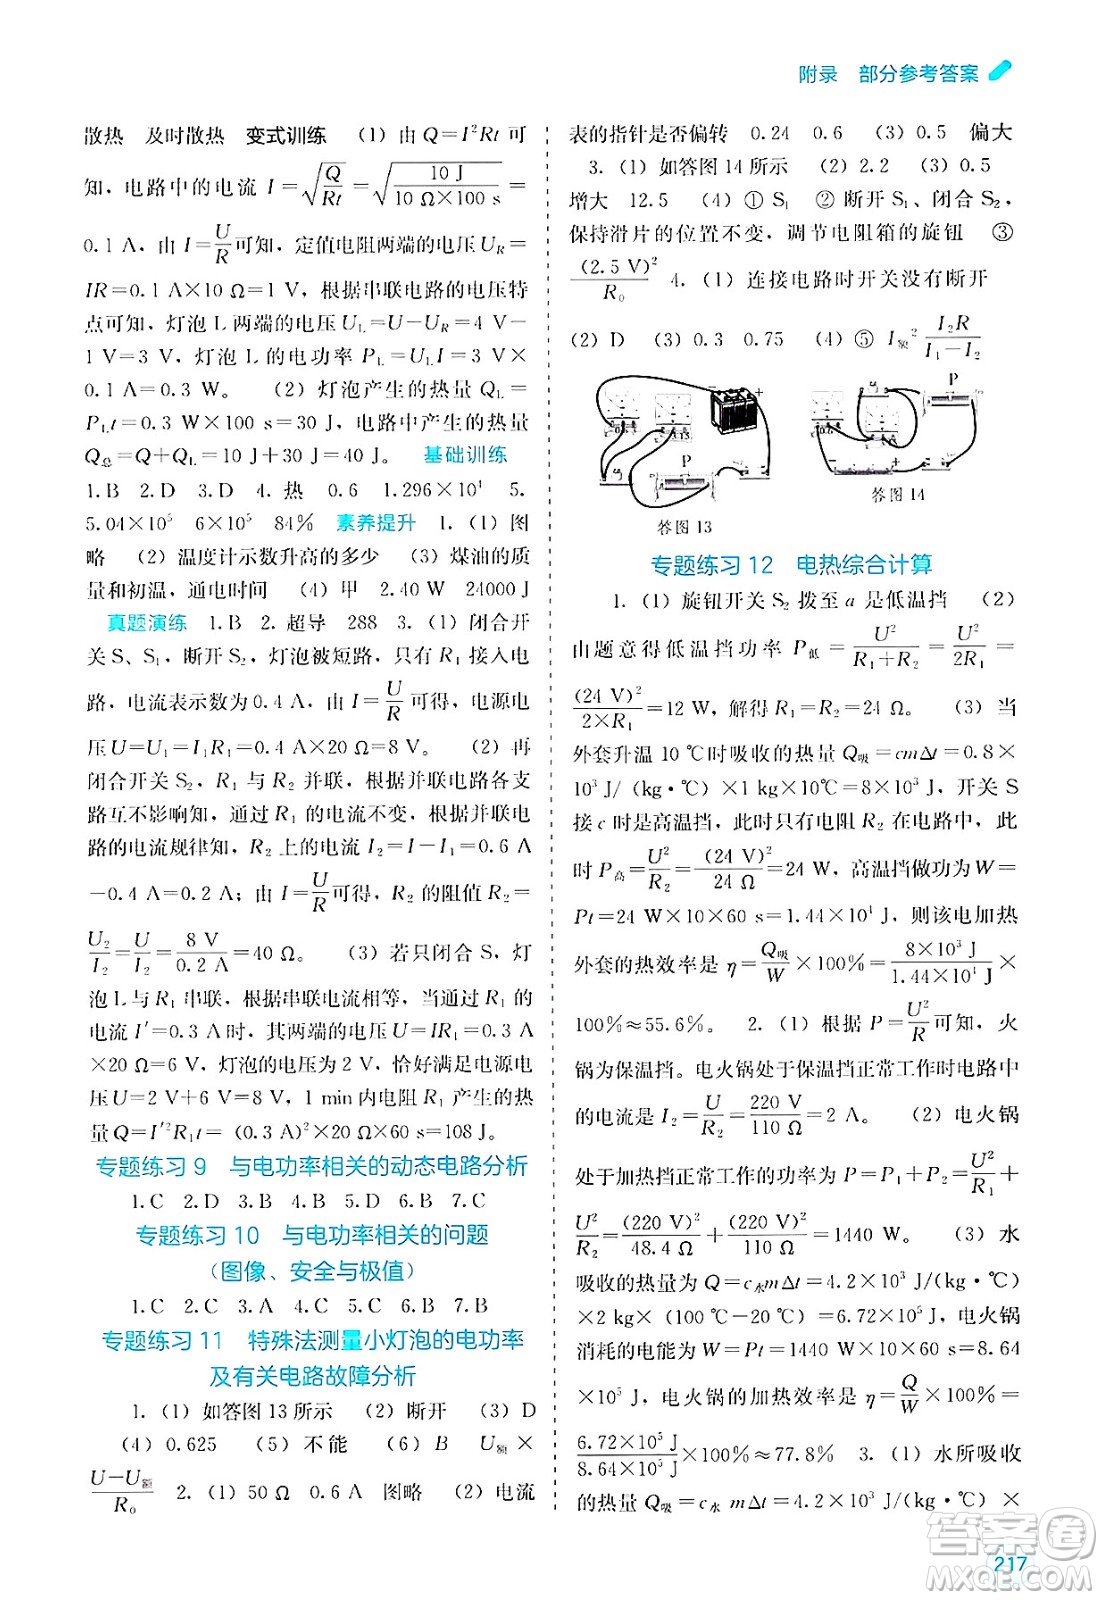 附录 部分参考答案
散热 及时散热 变式训练 (1)由Q=I²Rt可
知,电路中的电流 I=√(Q/Rt)=√(10 J/(10 Ω×100 s))=
0.1 A,由 I=U/R可知,定值电阻两端的电压U_R=
IR=0.1 A×10 Ω=1 V,根据串联电路的电压特
点可知,灯泡 L 两端的电压 U_L=U-U_R=4 V-
1 V=3 V,灯泡 L 的电功率 P_L=U_L I=3 V×
0.1 A=0.3 W。 (2)灯泡产生的热量 Q_L=
P_L t=0.3 W×100 s=30 J,电路中产生的热量
Q总=Q+Q_L=10 J+30 J=40 J。 基础训练
1.B 2.D 3.D 4.热 0.6 1.296×10⁴ 5.
5.04×10⁵ 6×10⁵ 84% 素养提升 1.(1)图
略 (2)温度计示数升高的多少 (3)煤油的质
量和初温,通电时间 (4)甲 2.40 W 24000 J
真题演练 1.B 2.超导 288 3.(1)闭合开
关 S、S₁,断开 S₂,灯泡被短路,只有 R₁ 接入电
路,电流表示数为 0.4 A,由 I=U/R可得,电源电
压 U=U₁=I₁R₁=0.4 A×20 Ω=8 V。 (2)再
闭合开关 S₂,R₁ 与 R₂ 并联,根据并联电路各支
路互不影响知,通过 R₁ 的电流不变,根据并联电
路的电流规律知,R₂ 上的电流 I₂=I-I₁=0.6 A
-0.4 A=0.2 A;由 I=U/R可得,R₂ 的阻值 R₂=
U₂/I₂=U/I₂=8 V/0.2 A=40 Ω。 (3)若只闭合 S,灯
泡 L 与 R₁ 串联,根据串联电流相等,当通过 R₁ 的
电流 I′=0.3 A时,其两端的电压 U=IR₁=0.3 A
×20 Ω=6 V,灯泡的电压为 2 V,恰好满足电源电
压 U=2 V+6 V=8 V,1 min 内电阻 R₁ 产生的热
量 Q=I′²R₁t=(0.3 A)²×20 Ω×60 s=108 J。
专题练习 9 与电功率相关的动态电路分析
1.C 2.D 3.B 4.B 5.D 6.B 7.C
专题练习 10 与电功率相关的问题
(图像、安全与极值)
1.C 2.C 3.A 4.B 5.C 6.B 7.B
专题练习 11 特殊法测量小灯泡的电功率
及有关电路故障分析
1.(1)如答图 13 所示 (2)断开 (3)D
(4)0.625 (5)不能 (6)B U额×
(U-U额)/R₀ 2.(1)50 Ω 0.6 A 图略 (2)电流
表的指针是否偏转 0.24 0.6 (3)0.5 偏大
3.(1)如答图 14 所示 (2)2.2 (3)0.5
增大 12.5 (4)①S₁ ②断开 S₁、闭合 S₂,
保持滑片的位置不变,调节电阻箱的旋钮 ③
(2.5 V)²/R₀ 4.(1)连接电路时开关没有断开
(2)D (3)0.3 0.75 (4)⑤ I额² I₂R/(I₁-I₂)
P
P
答图 14
答图 13
专题练习 12 电热综合计算
1.(1)旋钮开关 S₂ 拨至 a 是低温挡 (2)
由题意得低温挡功率 P低=U²/(R₁+R₂)=U²/2R₁=
(24 V)²/(2×R₁)=12 W,解得 R₁=R₂=24 Ω。 (3)当
外套升温 10 ℃时吸收的热量 Q吸=cmΔt=0.8×
10³ J/(kg·℃)×1 kg×10℃=8×10³ J,开关 S
接 c 时是高温挡,此时只有电阻 R₂ 在电路中,此
时 P高=U²/R₂=(24 V)²/24 Ω=24 W,高温挡做功为 W=
Pt=24 W×10×60 s=1.44×10⁴ J,则该电加热
外套的热效率是 η=Q吸/W×100%=(8×10³ J)/(1.44×10⁴ J)×
100%≈55.6%。 2.(1)根据 P=U²/R可知,火
锅为保温挡。电火锅处于保温挡正常工作时电路中
的电流是 I₂=U/R=220 V/110 Ω=2 A。 (2)电火锅
处于加热挡正常工作的功率 P=P₁+P₂=U²/R₁+
U²/R₂=(220 V)²/48.4 Ω+(220 V)²/110 Ω=1440 W。 (3)水
吸收的热量 Q=c水mΔt=4.2×10³ J/(kg·℃)
×2 kg×(100 ℃-20 ℃)=6.72×10⁵ J,电火锅
消耗的电能为 W=Pt=1440 W×600 s=8.64
×10⁵ J,电火锅的加热效率是 η=Q/W×100%=
(6.72×10⁵ J)/(8.64×10⁵ J)×100%≈77.8% 3.(1)水所吸收
的热量 Q吸=c水 mΔt=4.2×10³ J/(kg·℃)×
217
答案圈
MXQE.COM